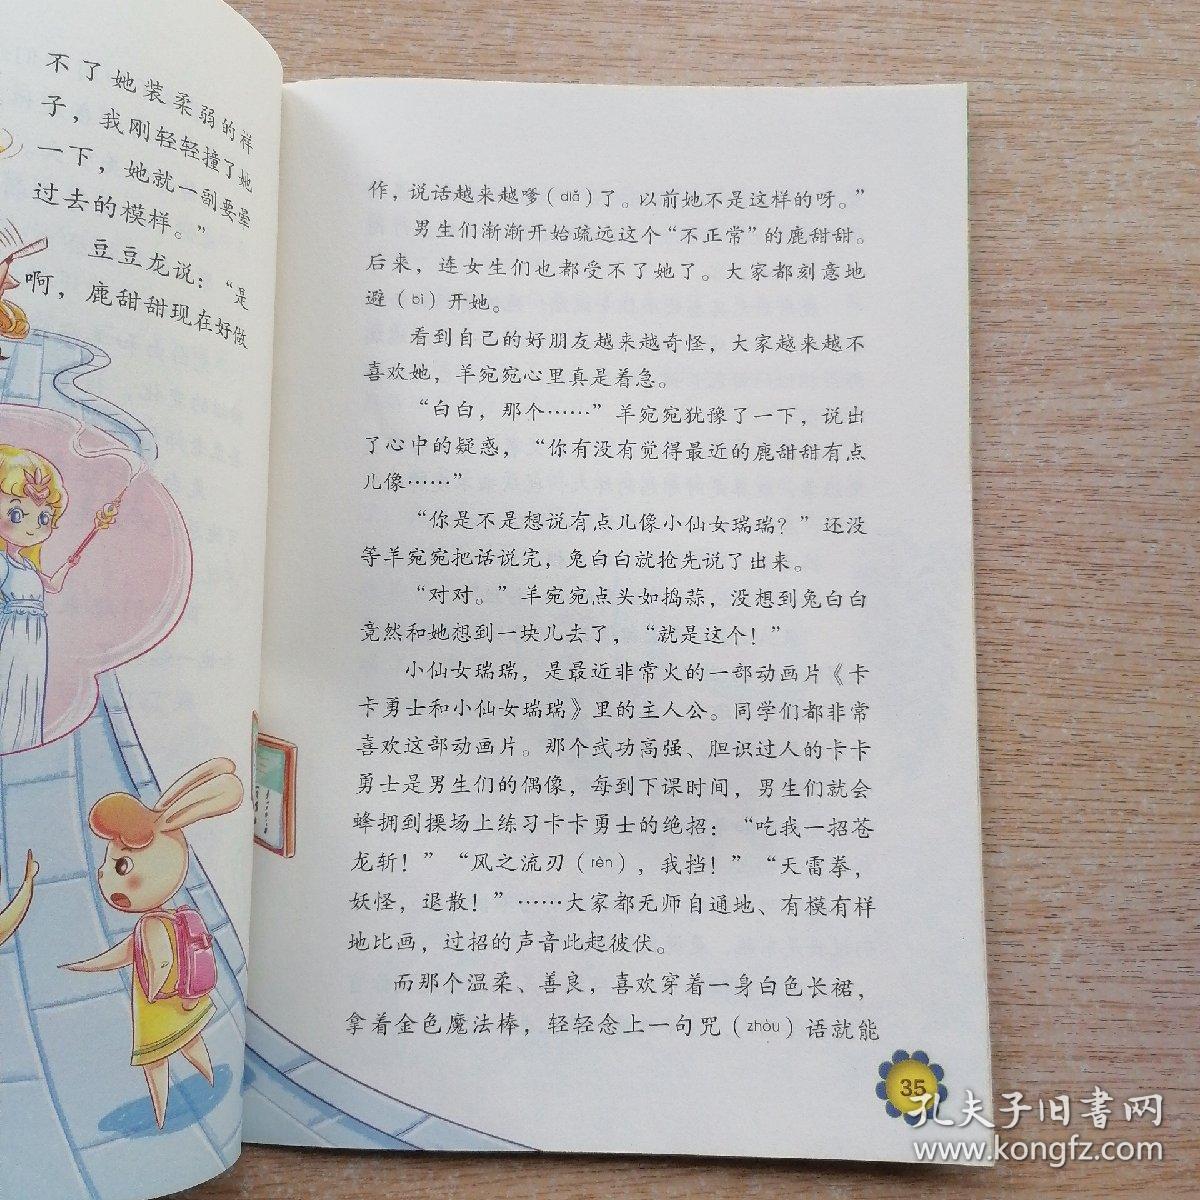 不了她装柔弱的样
子，我刚轻轻撞了她
一下，她就一副要晕
过去的模样。”
豆豆龙说：“是
啊，鹿甜甜现在好做
作，说话越来越嗲（diǎ）了。以前她不是这样的呀。”
男生们渐渐开始疏远这个“不正常”的鹿甜甜。
后来，连女生们也都受不了她了。大家都刻意地
避（bì）开她。
看到自己的好朋友越来越奇怪，大家越来越不
喜欢她，羊宛宛心里真是着急。
“白白，那个……”羊宛宛犹豫了一下，说出
了心中的疑惑，“你有没有觉得最近的鹿甜甜有点
儿像……”
“你是不是想说有点儿像小仙女瑞瑞？”还没
等羊宛宛把话说完，兔白白就抢先说了出来。
“对对。”羊宛宛点头如捣蒜，没想到兔白白
竟然和她想到一块儿去了，“就是这个！”
小仙女瑞瑞，是最近非常火的一部动画片《卡
卡勇士和小仙女瑞瑞》里的主人公。同学们都非常
喜欢这部动画片。那个武功高强、胆识过人的卡卡
勇士是男生们的偶像，每到下课时间，男生们就会
蜂拥到操场上练习卡卡勇士的绝招：“吃我一招苍
龙斩！”“风之流刃（rèn），我挡！”“天雷拳，
妖怪，退散！”……大家都无师自通地、有模有样
地比画，过招的声音此起彼伏。
而那个温柔、善良，喜欢穿着一身白色长裙，
拿着金色魔法棒，轻轻念上一句咒（zhòu）语就能
35
孔夫子旧书网
www.kongfz.com